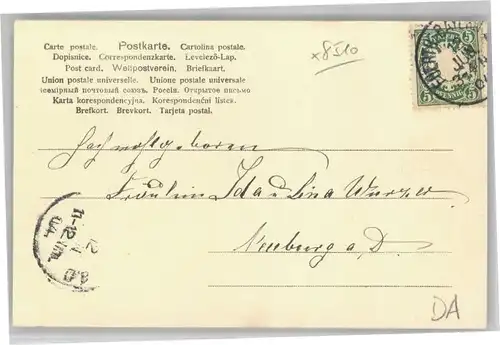 Carte postale. Postkarte. Cartolina postale.
Dopisnice. Correspondenzkarte. Levelező-Lap.
Post card. Weltpostverein. Briefkaart.
Union postale universelle. Unione postale universale
всемірный почтовый союзъ. Россія. Открытое письмо
Karta korespondencyjna. Korespondenční listek.
Brefkort. Brevkort. Tarjeta postal.
x8510
5 5
5 PFENNIG 5
Hochwohlgeboren
Fräulein Ida u Lina Wurzer
Neuburg a, D.
11-12
Vm.
04.
DA